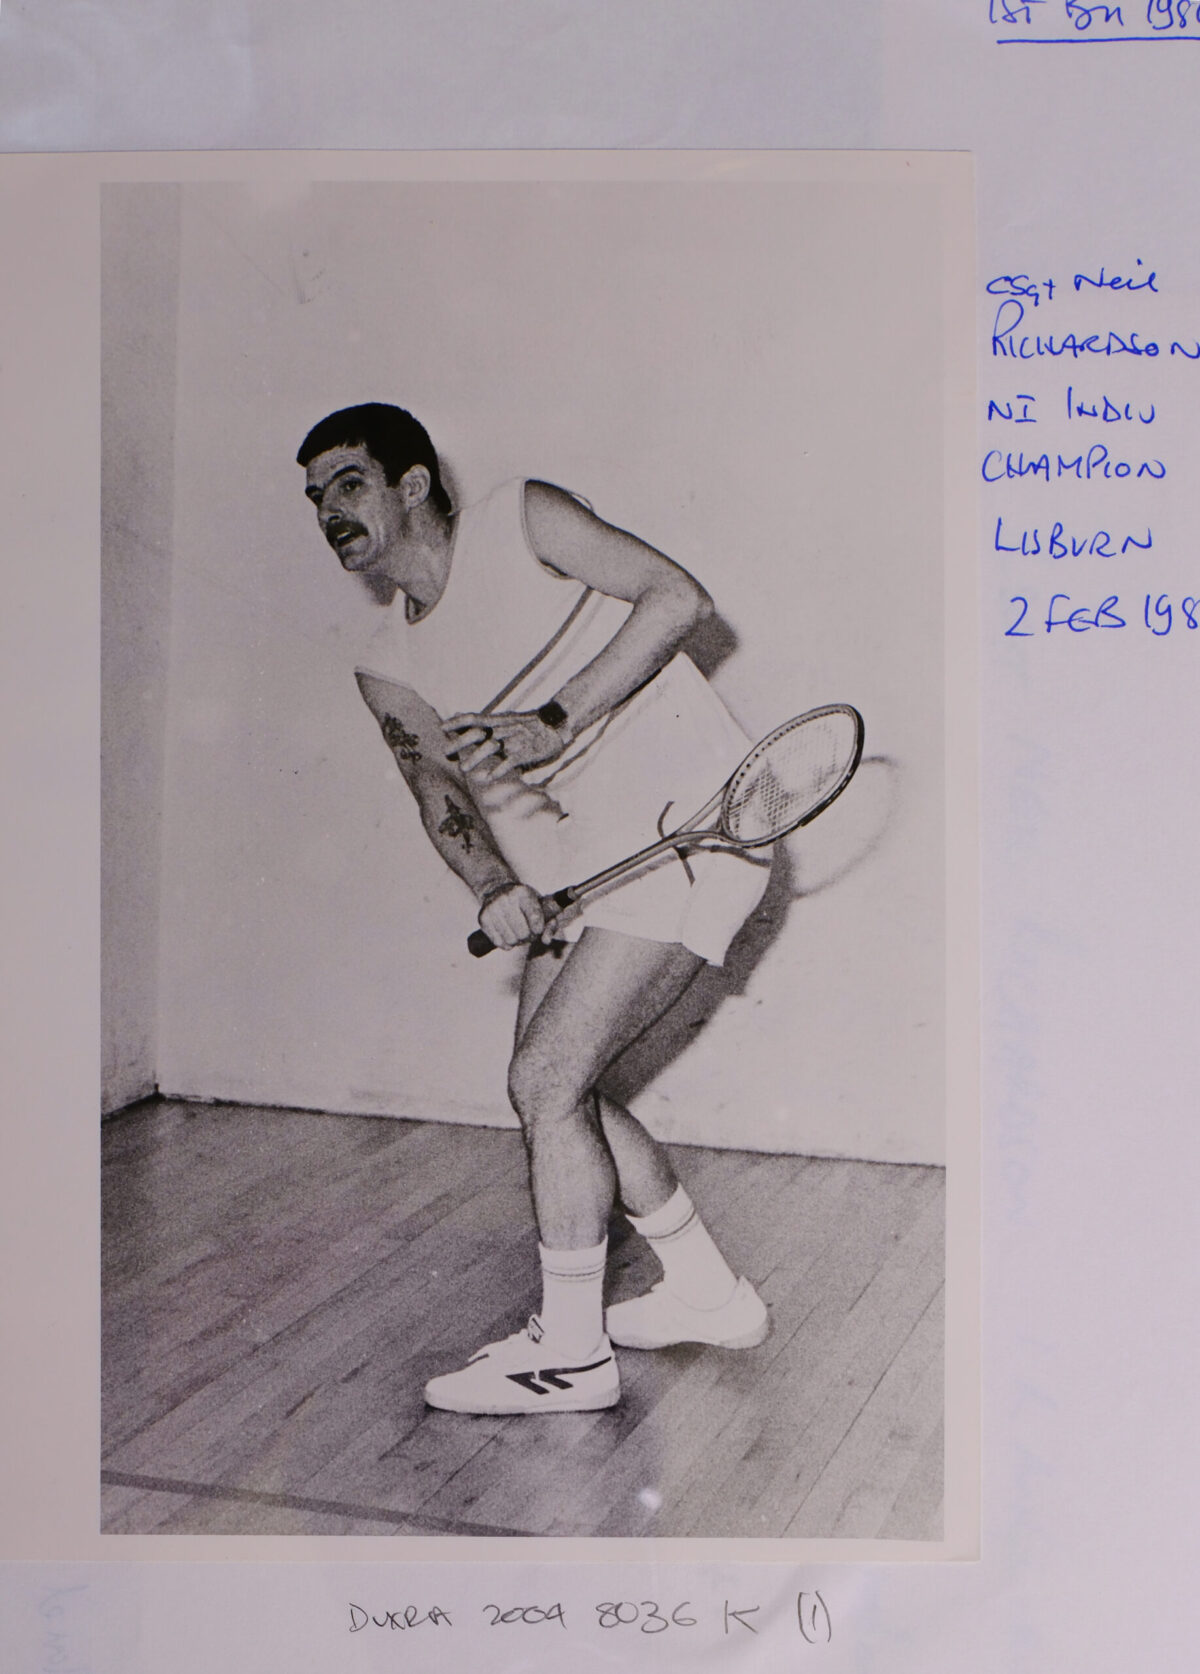 1ST BN 198
CSgt Neil
RICHARDSON
NI INDIV
CHAMPION
LISBURN
2 FEB 198
DWRA 2004 8036 K (1)